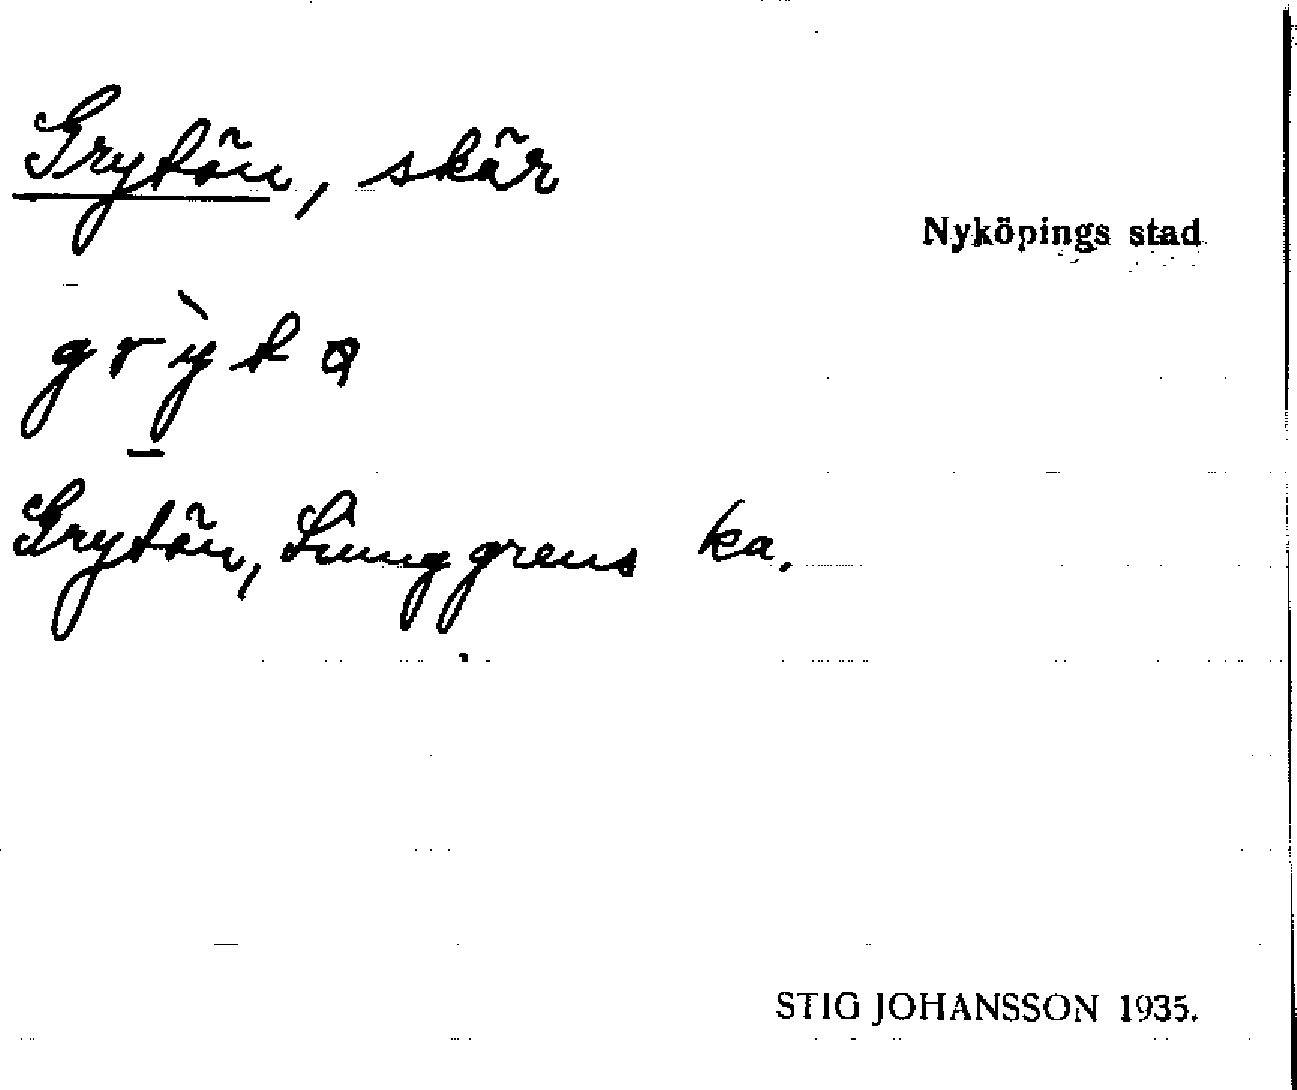 Grytön, skär
Nyköpings stad
grỳt
Grytön, Ljunggrens ka.
STIG JOHANSSON 1935.